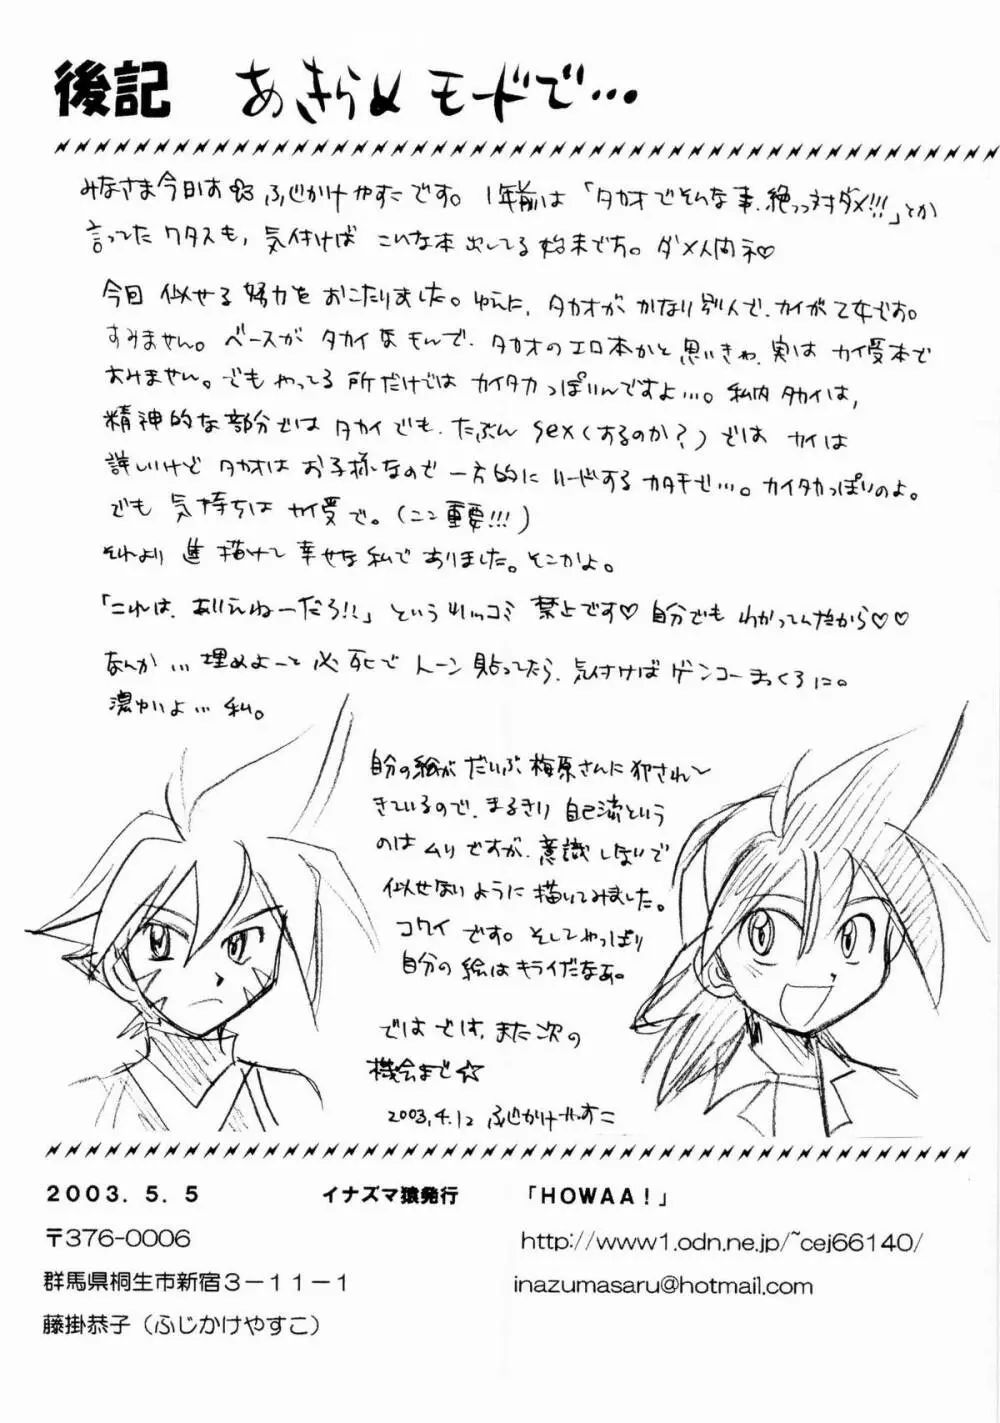 後記 あきらめモードで…
みなさま今日お ふじかけやすこです。1年前は「タカオでそんな事、絶っっ対ダメ!!!」とか
言ってたワタスも、気付けば こんな本出してる始末です。ダメ人間ネ♡
今回 似せる努力をおこたりました。ゆえに、タカオが かなり別人で、カイが乙女です。
すみません。ベースが タカイなもんで、タカオのエロ本かと思いきや、実は カイ受本で
すみません。でも やってる所だけでは カイタカっぽいんですよ…。私内 タカイは、
精神的な部分では タカイでも、たぶん sex(するのか?)では カイは
詳しいけど タカオは お子様なので 一方的に リードするカタチで…。カイタカっぽいのよ。
でも 気持ちは カイ受で。(ココ 重要!!!)
それより 進 描けて 幸せな私で ありました。そこかよ。
「これは、ありえねーだろ!!」という ツッコミ 禁止です♡ 自分でも わかってんだから♡♡
なんか…埋めよーと 必死で トーン 貼ってたら、気付けば ゲンコー まっくろに。
濃ゆいよ…私。
自分の絵が だいぶ 梅原さんに 犯されて
きているので、まるきり 自己流という
のは ムリですが、意識しないで
似せないように 描いてみました。
コワイ です。そしてやっぱり
自分の 絵は キライだなあ。
では では、また 次の
機会まで☆
2003.4.12 ふじかけやすこ
2003.5.5 イナズマ猿発行 「HOWAA!」
〒376-0006 http://www1.odn.ne.jp/~cej66140/
群馬県桐生市新宿3-11-1 inazumasaru@hotmail.com
藤掛恭子(ふじかけやすこ)